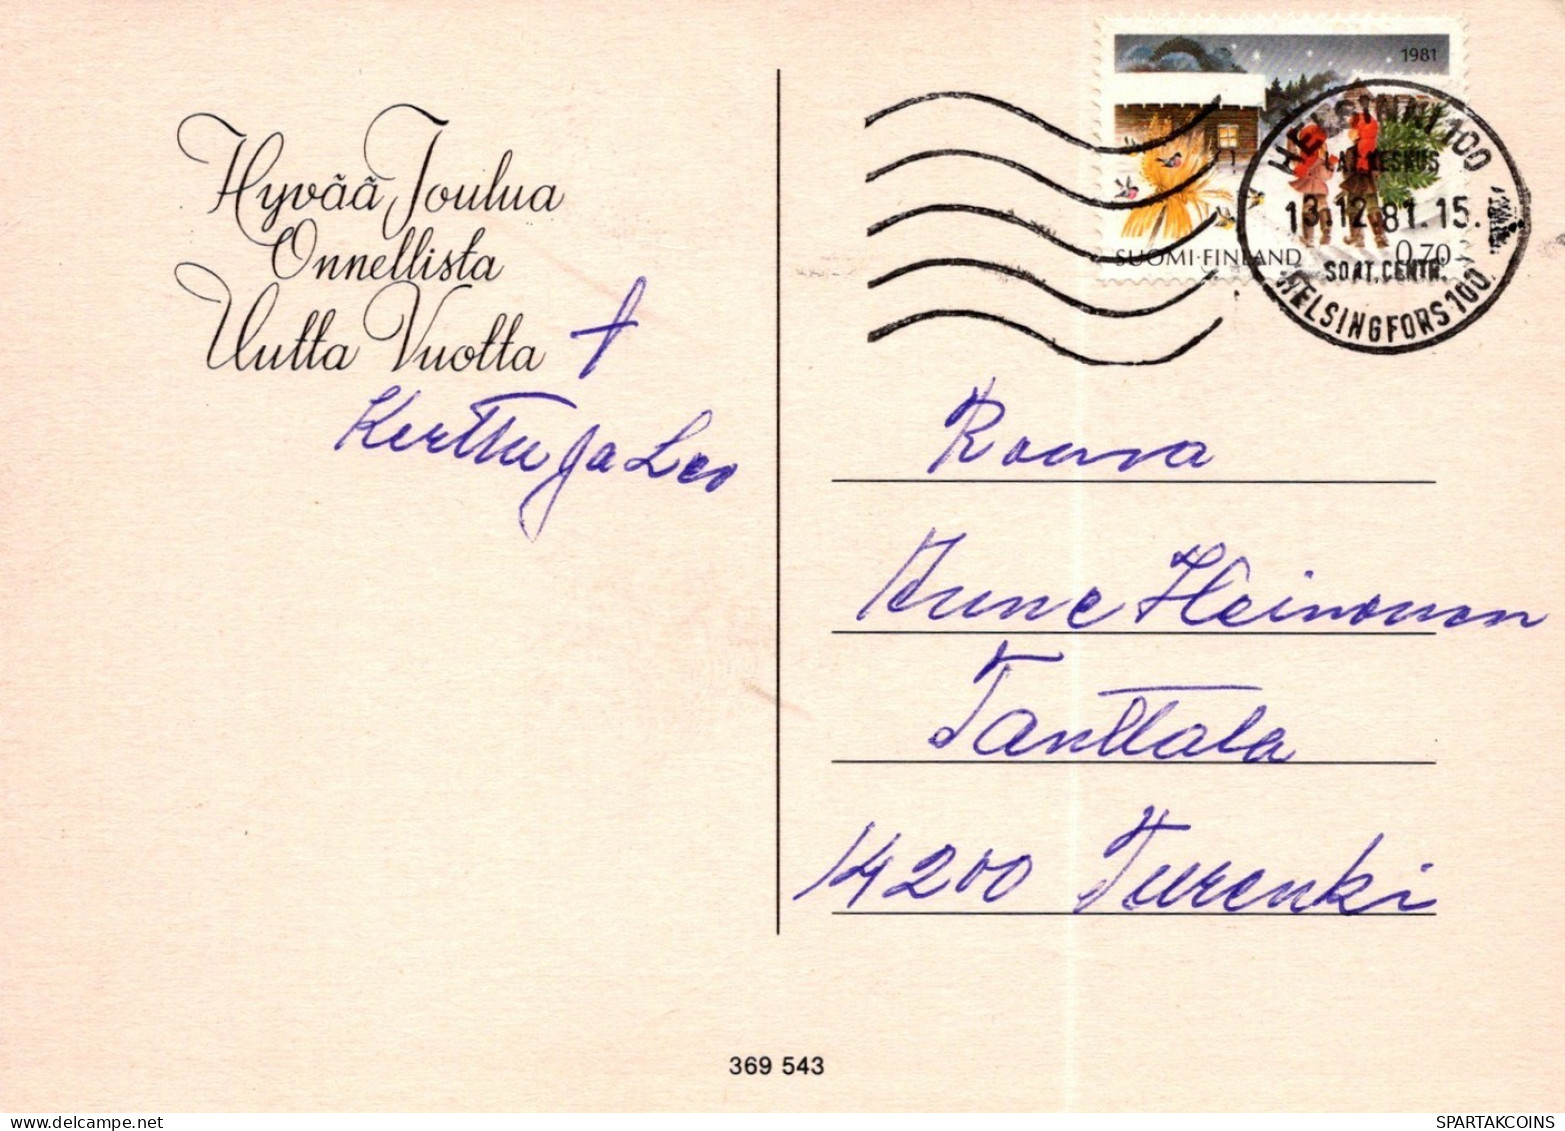 Hyvää Joulua
Onnellista
Uutta Vuotta
Kerttu ja Leo
1981
SUOMI·FINLAND
0,70
HELSINKI 100
LAJ.KESKUS
13.12.81.15.
SORT.CENTR.
HELSINGFORS 100
Rouva
Aune Heinonen
Tanttala
14200 Turenki
369 543
SPARTAKCOINS